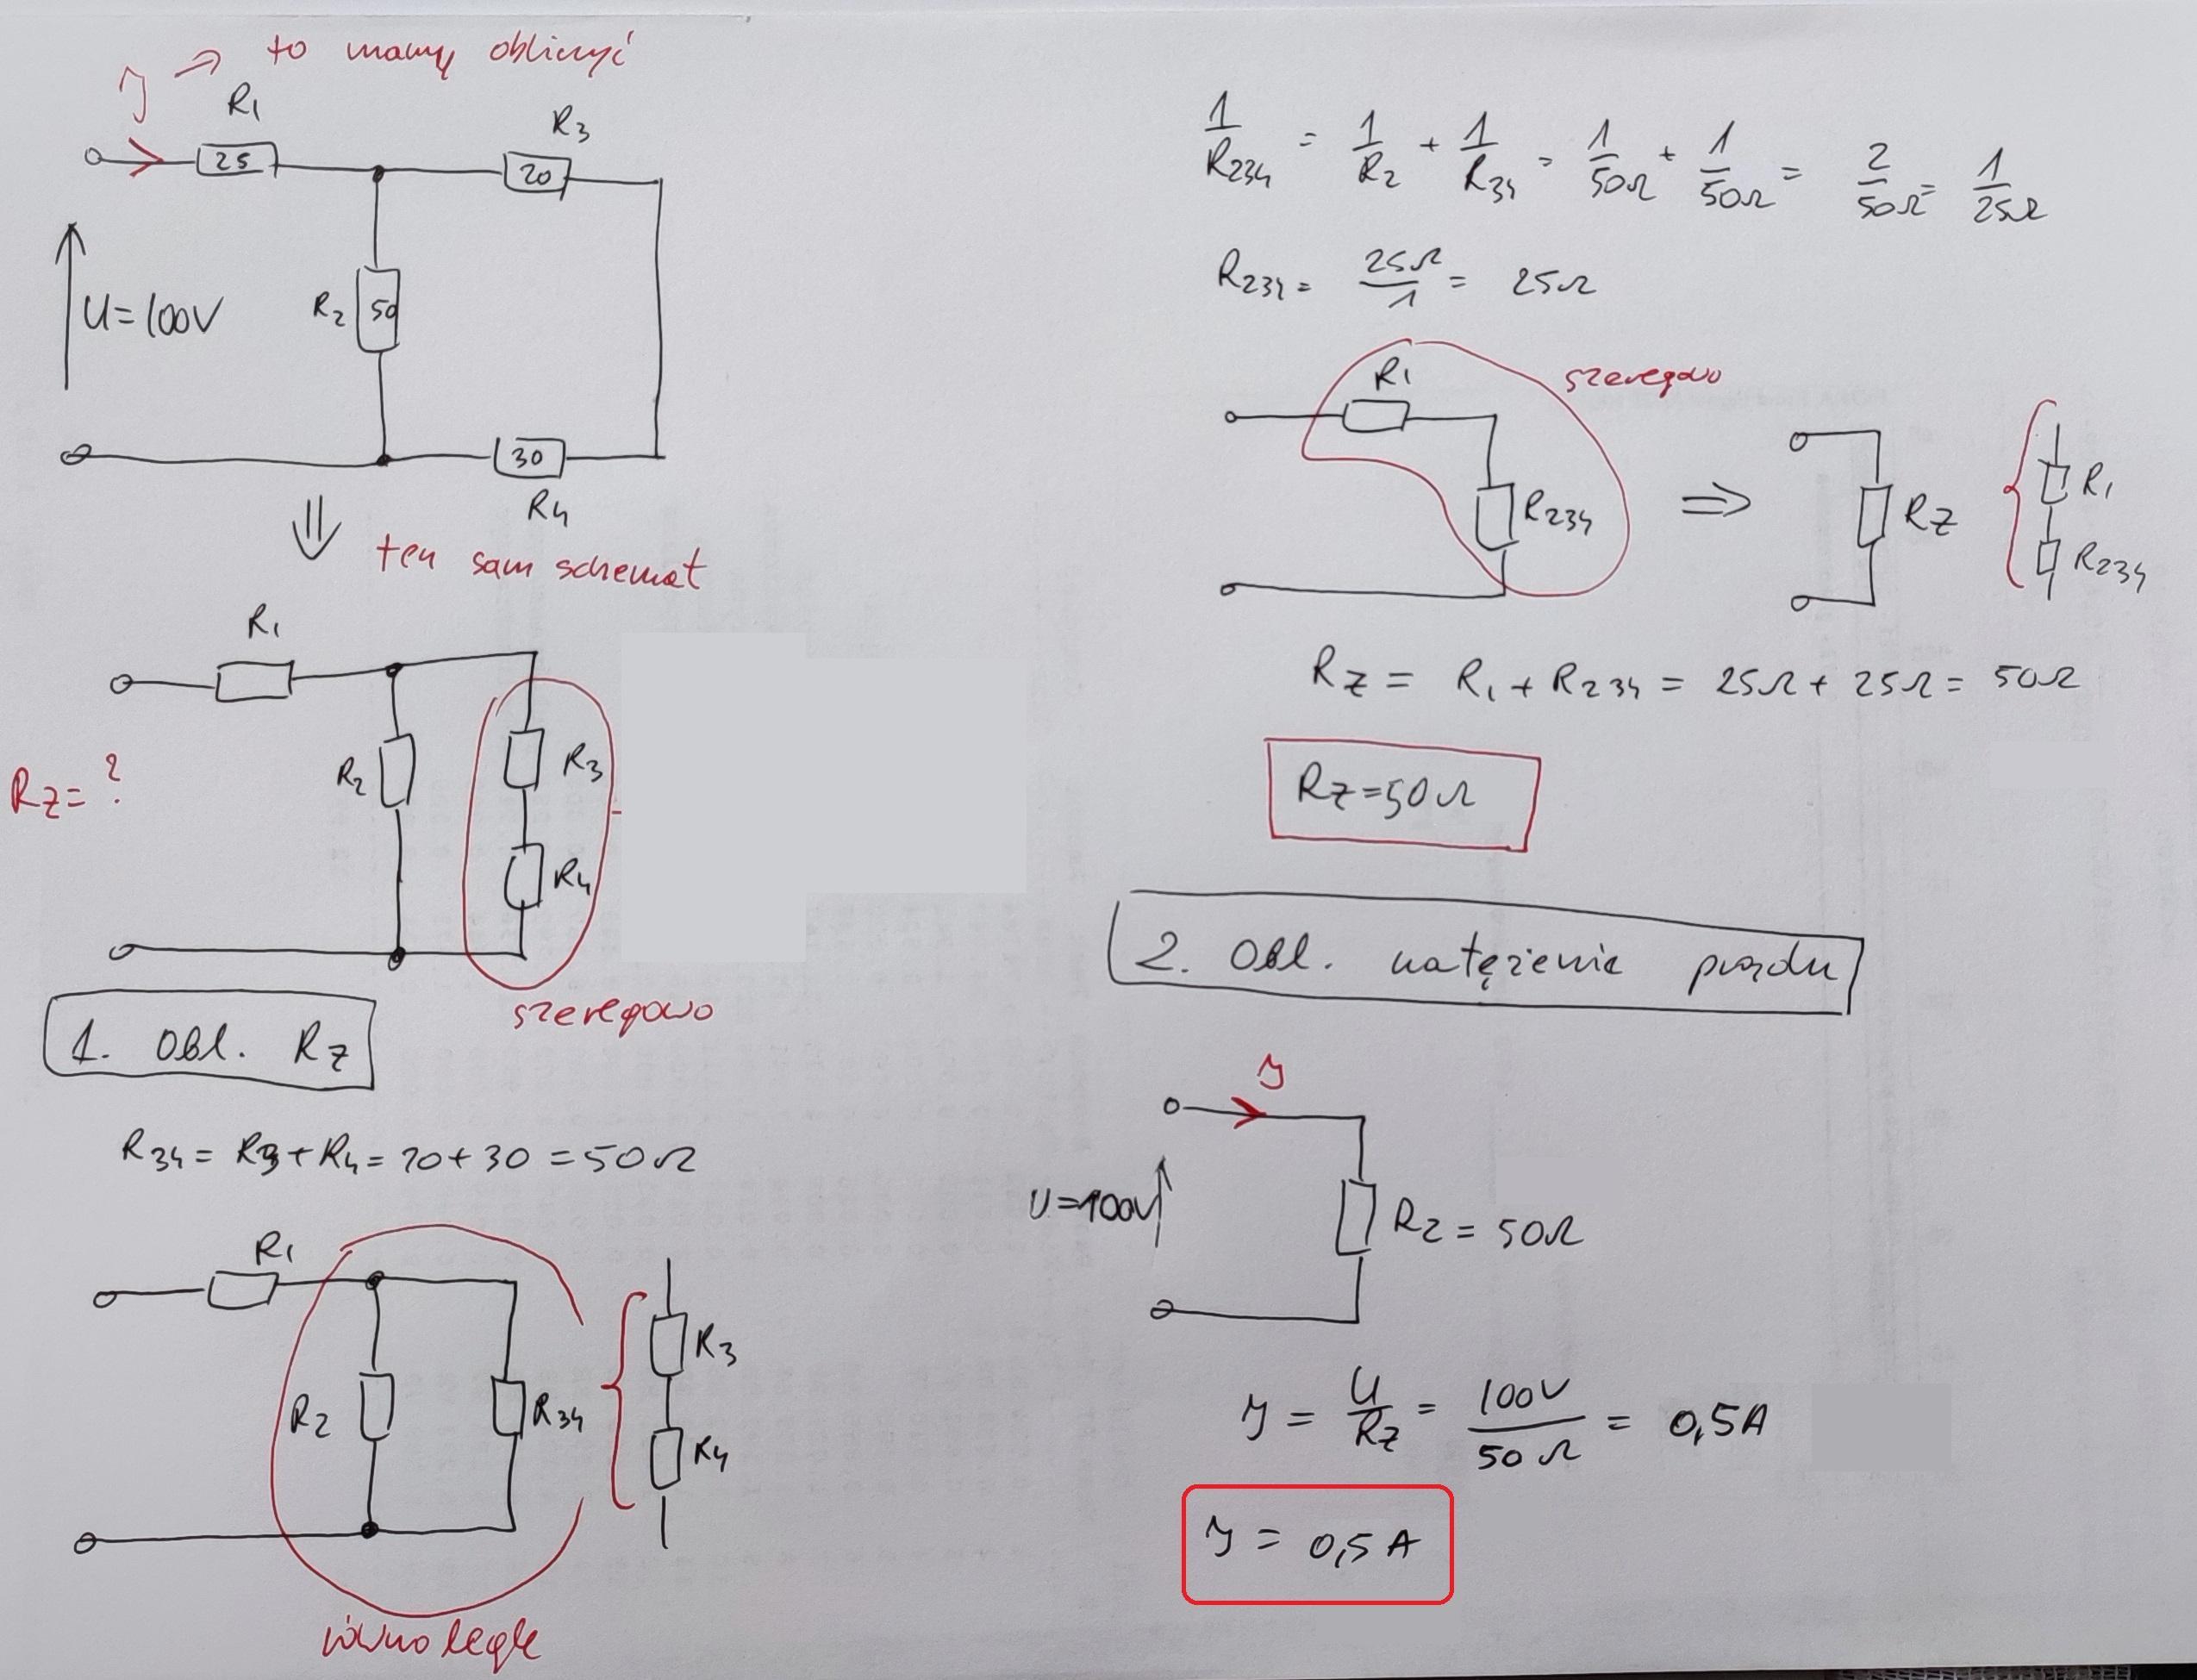 I ⇒ to mamy obliczyć
R1
R3
25
20
U=100V
R2 50
30
R4
⇓ ten sam schemat
R1
Rz=?
R2
R3
R4
szeregowo
1. Obl. Rz
R34 = R3+R4 = 20+30 = 50Ω
R1
R2
R34
R3
R4
równolegle
1/R234 = 1/R2 + 1/R34 = 1/50Ω + 1/50Ω = 2/50Ω = 1/25Ω
R234 = 25Ω/1 = 25Ω
R1
szeregowo
R234
⇒
Rz
R1
R234
Rz = R1 + R234 = 25Ω + 25Ω = 50Ω
Rz=50Ω
2. Obl. natężenie prądu
I
U=100V
Rz = 50Ω
I = U/Rz = 100V/50Ω = 0,5A
I = 0,5A